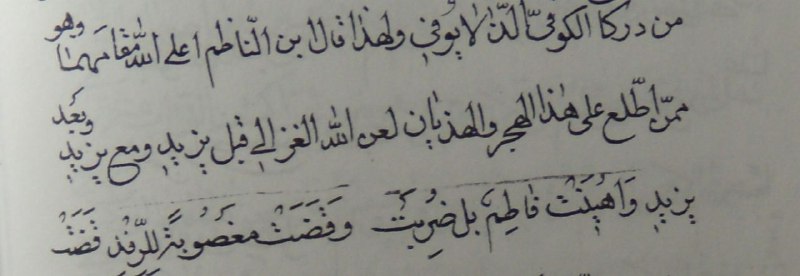 من دركا الكوفيّ الّذي لا يوفي ولهذا قال ابن النّاظم اعلى الله مقامهما وهو
ممّن اطّلع على هذا الهجر والهذيان لعن الله الغزالي قبل يزيد ومع يزيد وبعد
يزيد وَاُهِينَتْ فاطِمَ بل ضُرِبَتْ وَقَضَتْ مغصُوبةً للرّفدِ قَضَتْ